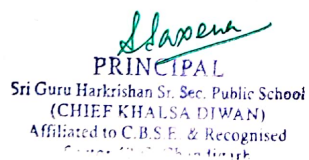 SSaxena
PRINCIPAL
Sri Guru Harkrishan Sr. Sec. Public School
(CHIEF KHALSA DIWAN)
Affiliated to C.B.S.E. & Recognised